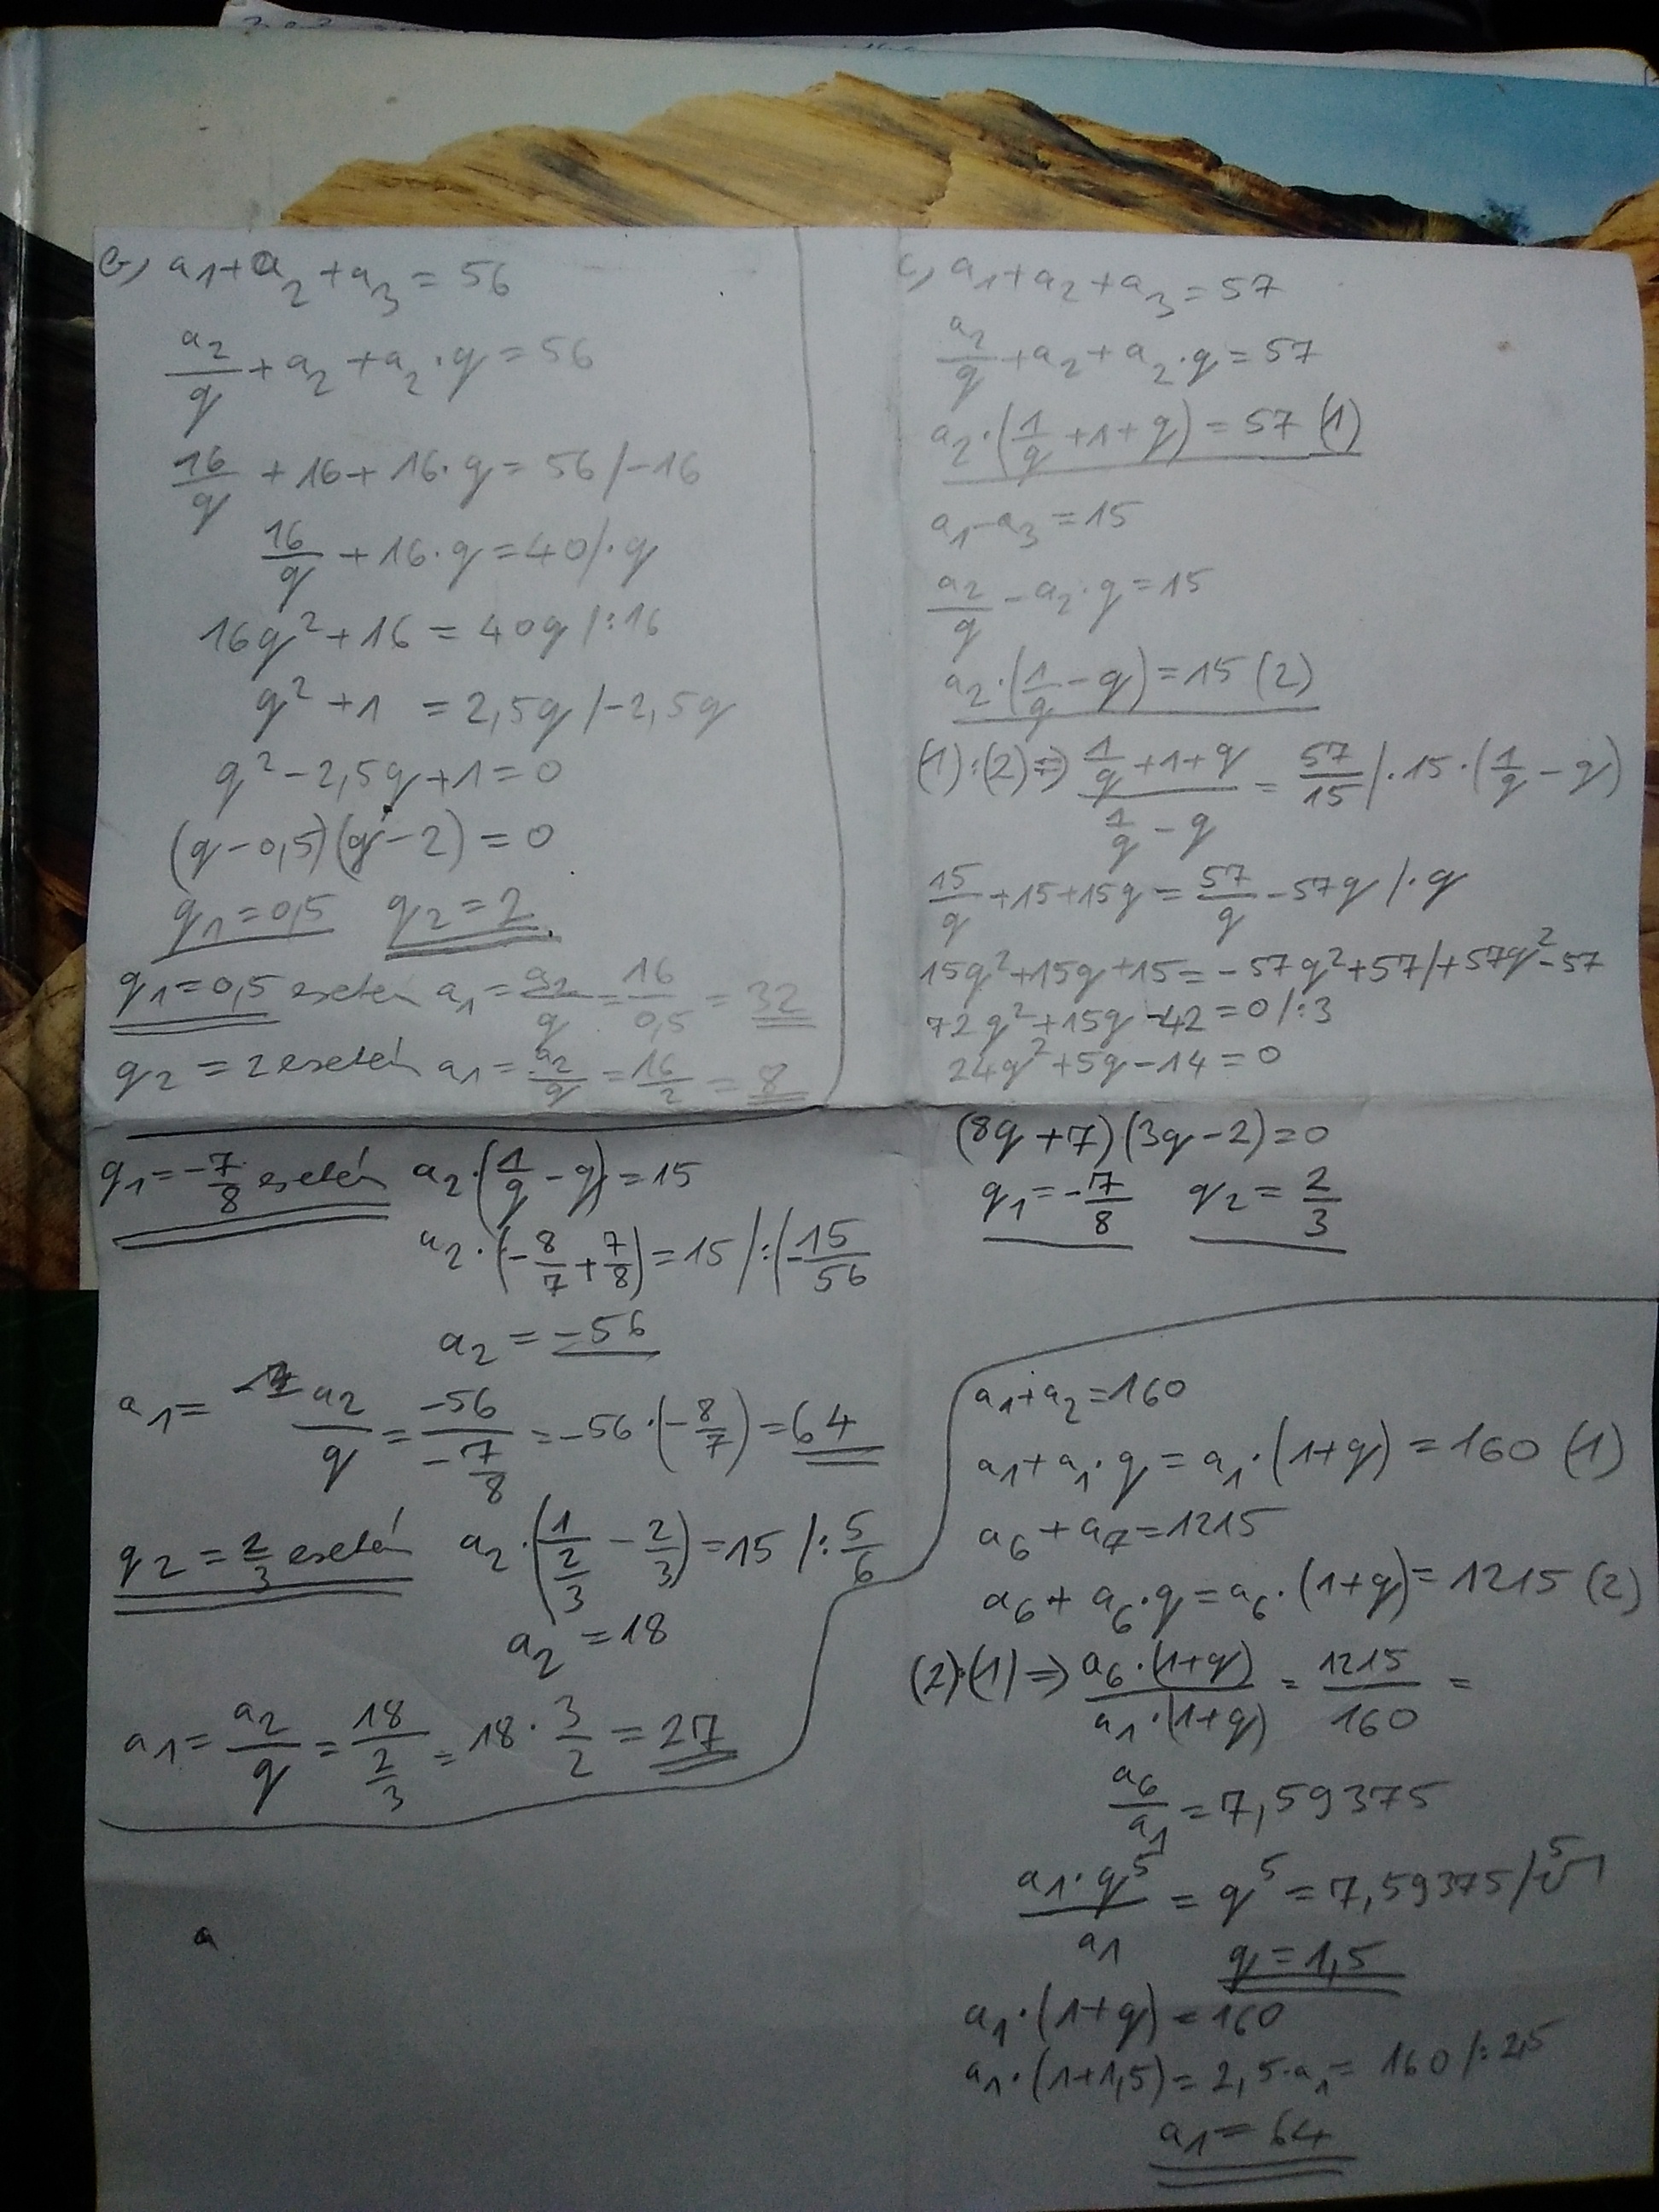 b, a1+a2+a3=56
a2/q+a2+a2·q=56
16/q+16+16·q=56/-16
16/q+16·q=40/·q
16q²+16=40q/:16
q²+1=2,5q/-2,5q
q²-2,5q+1=0
(q-0,5)(q-2)=0
q1=0,5 q2=2
q1=0,5 esetén a1=a2/q=16/0,5=32
q2=2 esetén a1=a2/q=16/2=8
c, a1+a2+a3=57
a2/q+a2+a2·q=57
a2·(1/q+1+q)=57 (1)
a1-a3=15
a2/q-a2·q=15
a2·(1/q-q)=15 (2)
(1):(2)=> (1/q+1+q)/(1/q-q)=57/15/·15·(1/q-q)
15/q+15+15q=57/q-57q/·q
15q²+15q+15=-57q²+57/+57q²-57
72q²+15q-42=0/:3
24q²+5q-14=0
(8q+7)(3q-2)=0
q1=-7/8 q2=2/3
q1=-7/8 esetén a2·(1/q-q)=15
a2·(-8/7+7/8)=15/:(-15/56
a2=-56
a1=a2/q=-56/-7/8=-56·(-8/7)=64
q2=2/3 esetén a2·(1/2/3-2/3)=15/:5/6
a2=18
a1=a2/q=18/2/3=18·3/2=27
a
a1+a2=160
a1+a1·q=a1·(1+q)=160 (1)
a6+a7=1215
a6+a6·q=a6·(1+q)=1215 (2)
(2):(1)=> a6·(1+q)/a1·(1+q)=1215/160=
a6/a1=7,59375
a1·q⁵/a1=q⁵=7,59375/⁵√
q=1,5
a1·(1+q)=160
a1·(1+1,5)=2,5·a1=160/:2,5
a1=64